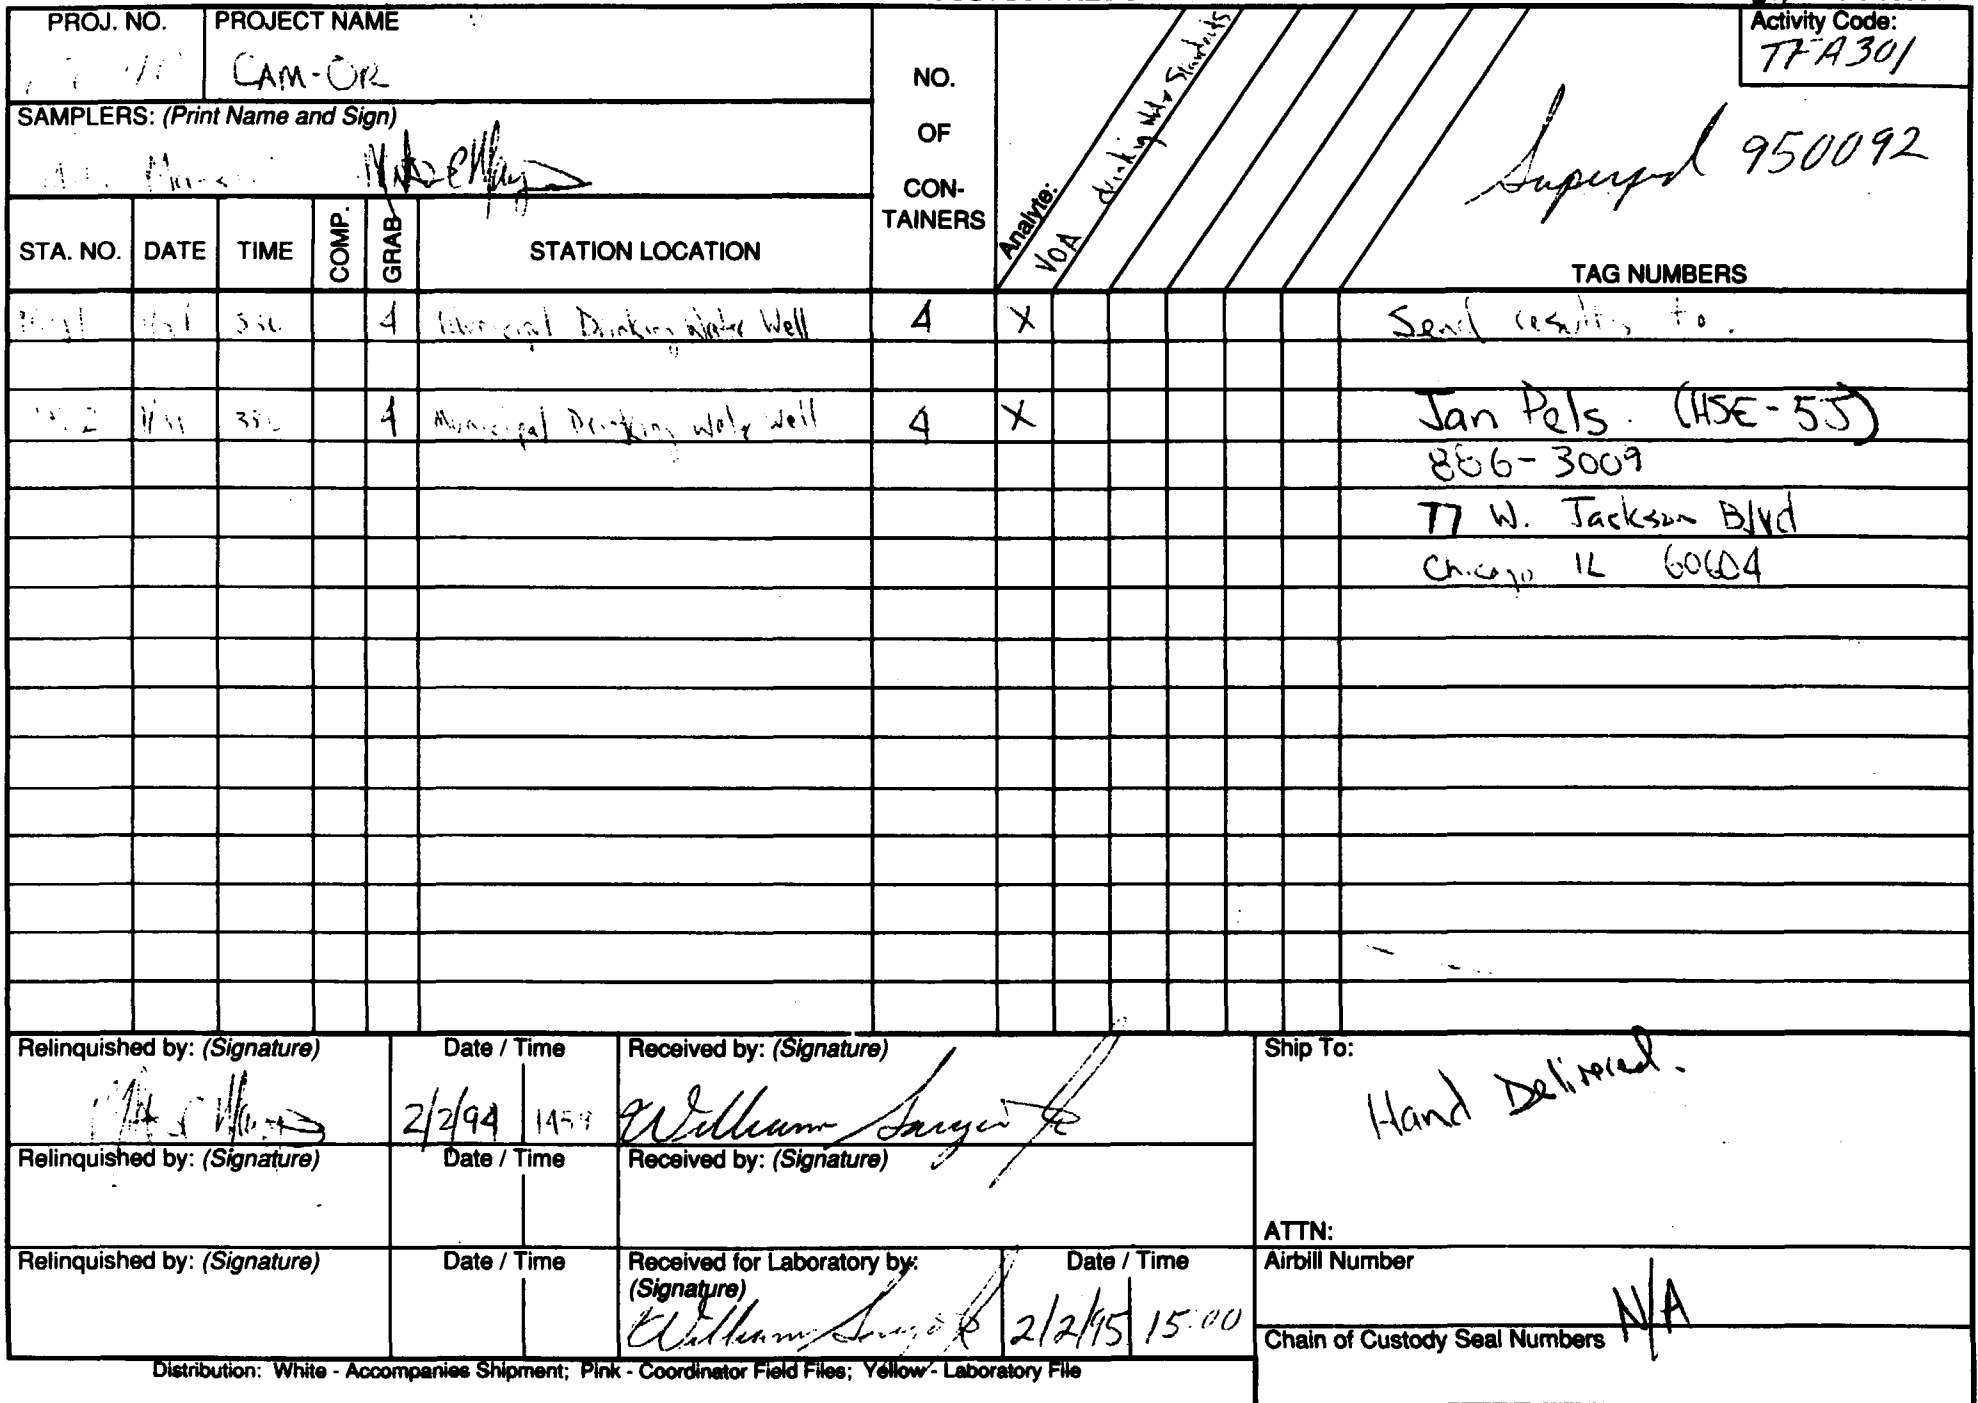 PROJ. NO.
PROJECT NAME
CAM-OR
SAMPLERS: (Print Name and Sign)
NO.
OF
CON-
TAINERS
Analyte:
VOA drinking Water Standards
Activity Code:
TFA301
Superfund 950092
STA. NO. DATE TIME COMP. GRAB STATION LOCATION
TAG NUMBERS
4 Municipal Drinking Water Well 4 X Send results to.
4 Municipal Drinking Water Well 4 X Jan Pels. (HSE-5J)
886-3009
77 W. Jackson Blvd
Chicago IL 60604
Relinquished by: (Signature) Date / Time Received by: (Signature)
2/2/94 William
Ship To:
Hand Delivered.
Relinquished by: (Signature) Date / Time Received by: (Signature)
ATTN:
Relinquished by: (Signature) Date / Time Received for Laboratory by: (Signature) Date / Time
William 2/2/95 15:00
Airbill Number
N/A
Chain of Custody Seal Numbers
Distribution: White - Accompanies Shipment; Pink - Coordinator Field Files; Yellow - Laboratory File